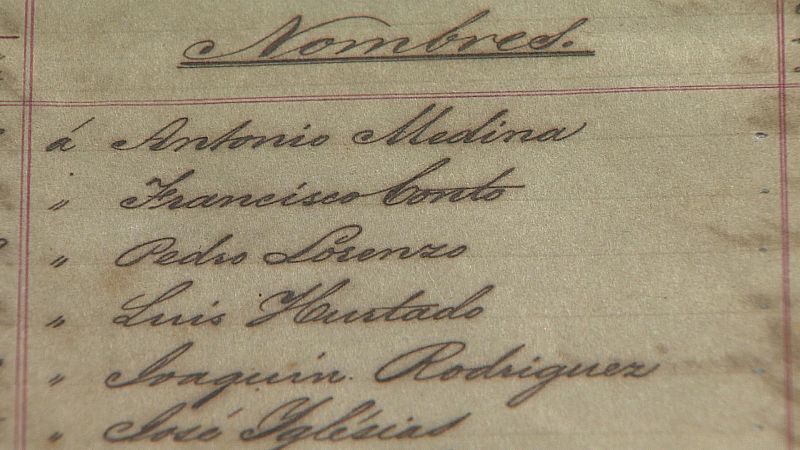 Nombres.
á Antonio Medina
" Francisco Conto
" Pedro Lorenzo
" Luis Hurtado
" Joaquin Rodriguez
" José Yglésias